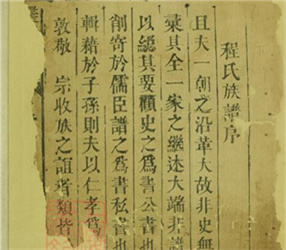 程氏族譜序
且夫一朝之沿革大故非史無
彙其全一家之繼述大端非譜
以綜其要顧史之爲書公書也
削寄於儒臣譜之爲書私書也
輯藉於子孫則夫以仁孝爲
敦敬 宗收族之誼者類皆